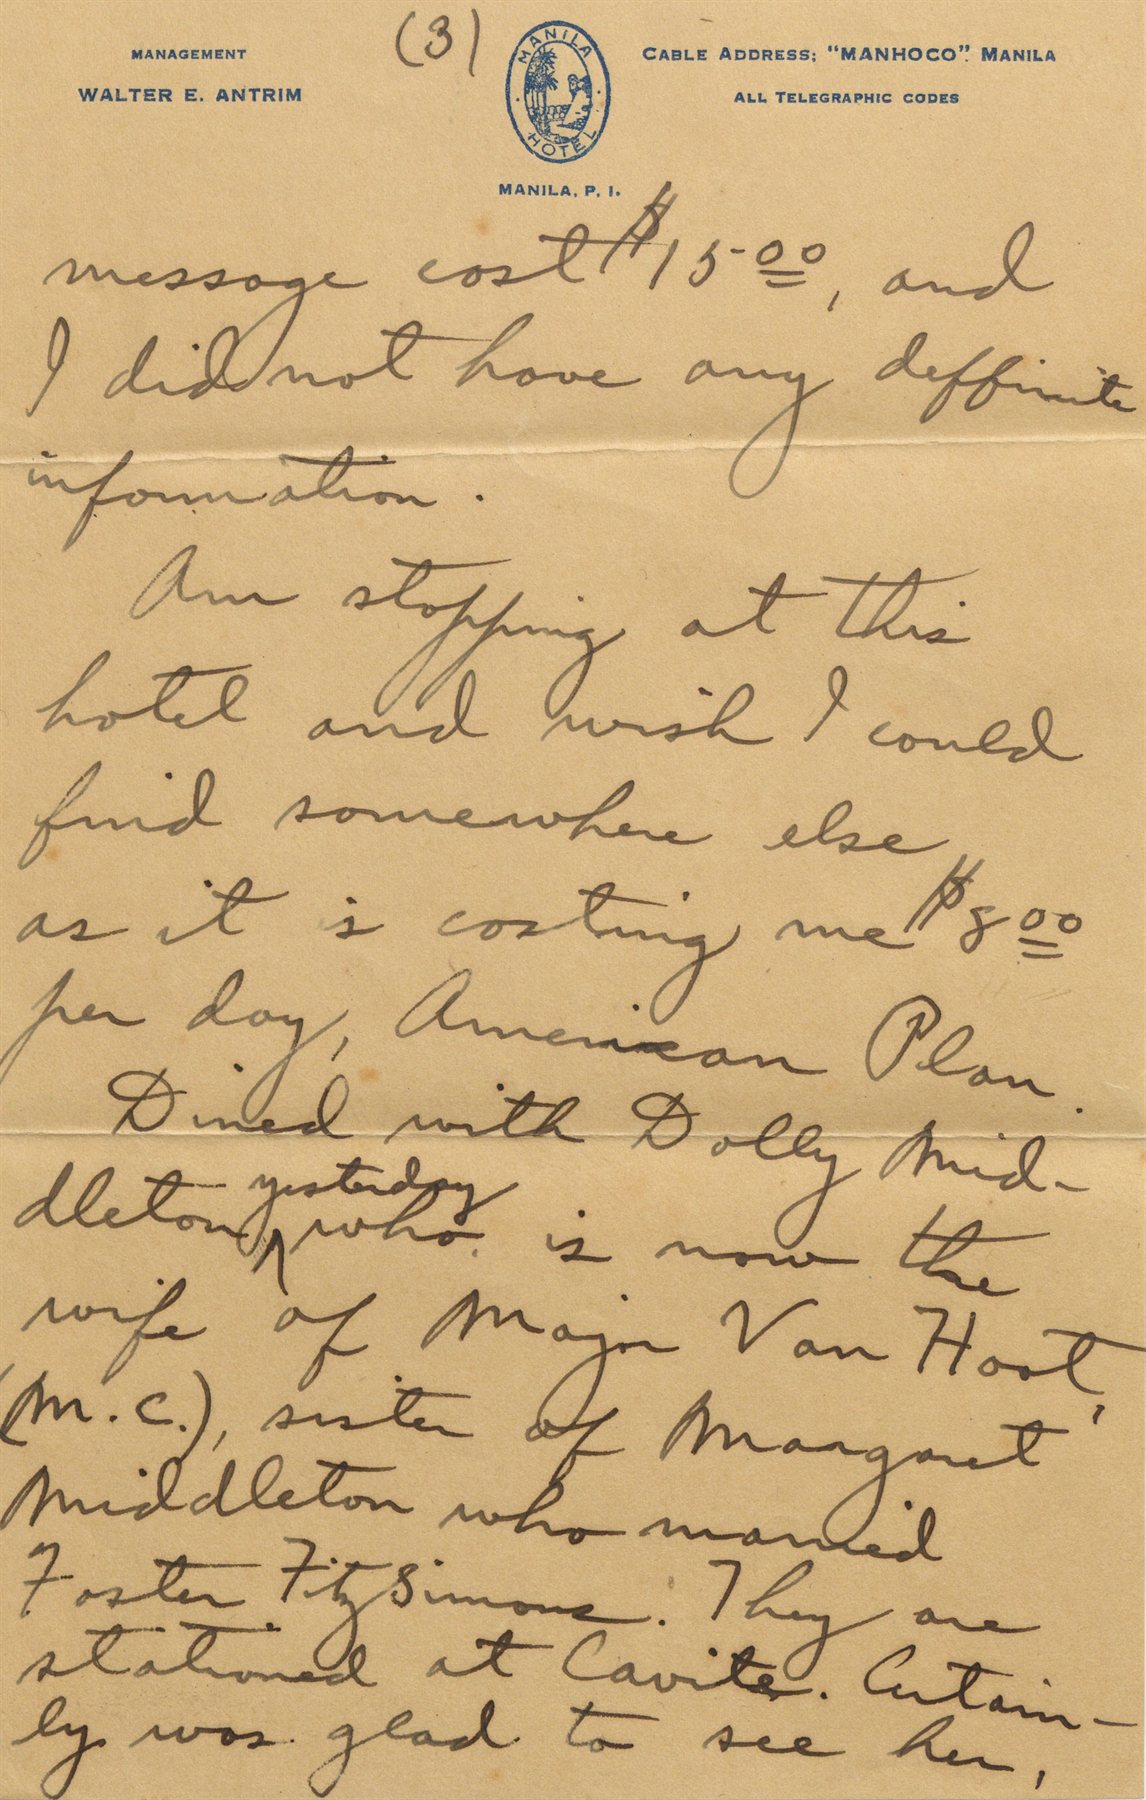 (3)
MANAGEMENT
WALTER E. ANTRIM
MANILA
HOTEL
MANILA, P. I.
CABLE ADDRESS; "MANHOCO". MANILA
ALL TELEGRAPHIC CODES
message cost $15.00, and
I did not have any deffinite
information.
Am stopping at this
hotel and wish I could
find somewhere else
as it is costing me $8.00
per day, American Plan.
Dined with Dolly Mid-
yesterday
dleton ^ who is now the
wife of Major Van Hoot,
(M.C.), sister of Margaret
Middleton who married
Foster FitzSimons. They are
stationed at Cavite. Certain-
ly was glad to see her,